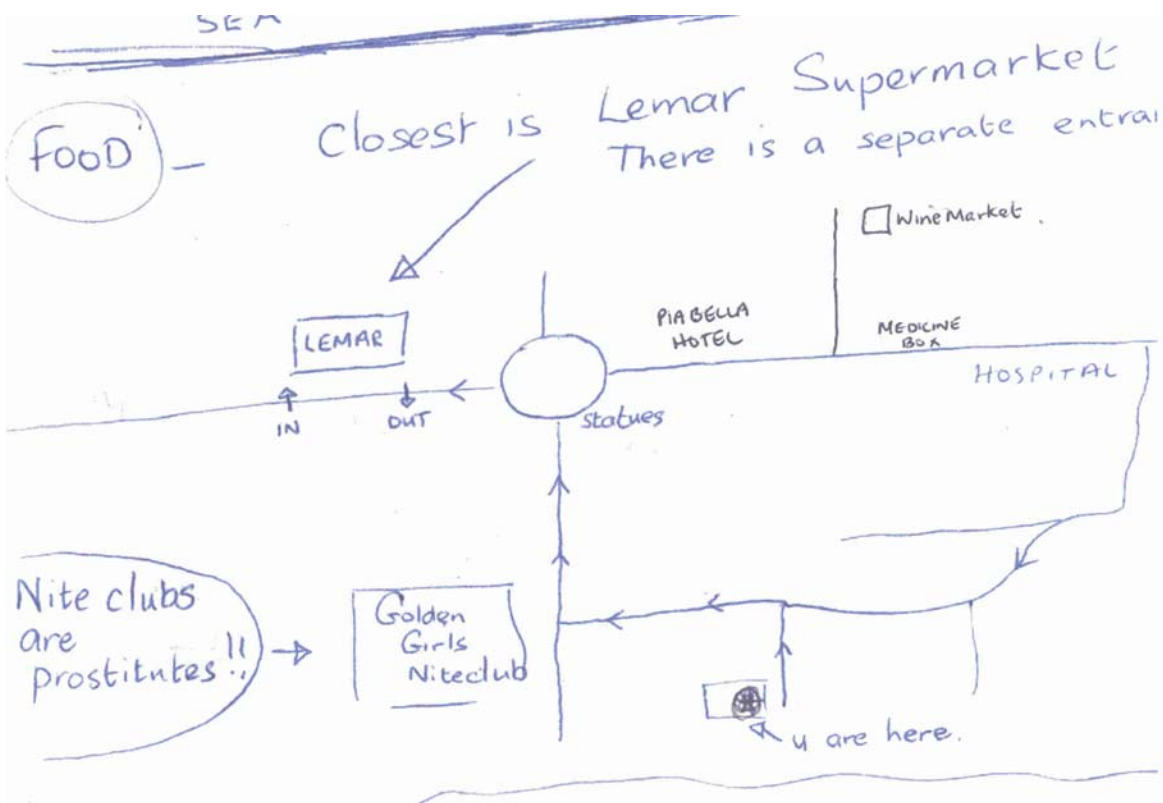 SEA
FOOD - Closest is Lemar Supermarket
There is a separate
Wine Market.
PIABELLA
HOTEL
MEDICINE
BOX
LEMAR
HOSPITAL
IN
OUT
Statues
Nite clubs
are
prostitutes!!
Golden
Girls
Niteclub
u are here.